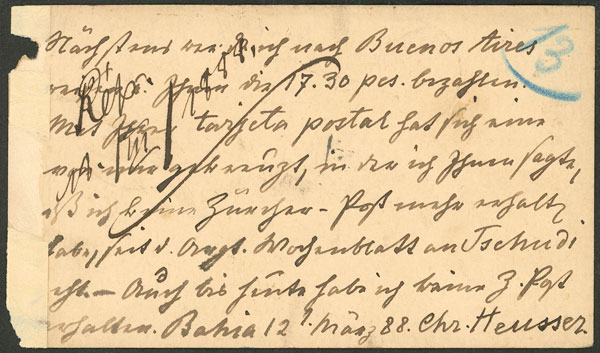 Nächstens werde ich nach Buenos Aires
Ihnen die 17.30 pes. bezahlen.
Mit Ihrer tarjeta postal hat sich eine
von mir gekreuzt, in der ich Ihnen sagte,
daß ich keine Zürcher-Post mehr erhalten
habe, seit d. Wochenblatt an Tschudi
geht. — Auch bis heute habe ich keine Z. Post
erhalten. Bahia 12 März 88. Chr. Heusser.
Rép.
1888.
13